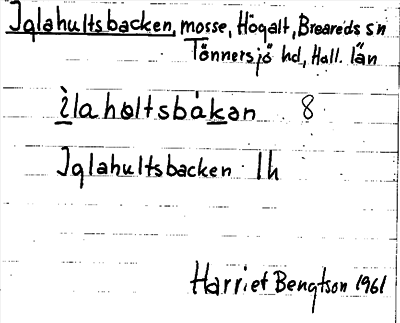 Iglahultsbacken, mosse, Högalt, Breareds sn
Tönnersjö hd, Hall. län
ìlahøltsbàkan 8
Iglahultsbacken lh
Harriet Bengtson 1961